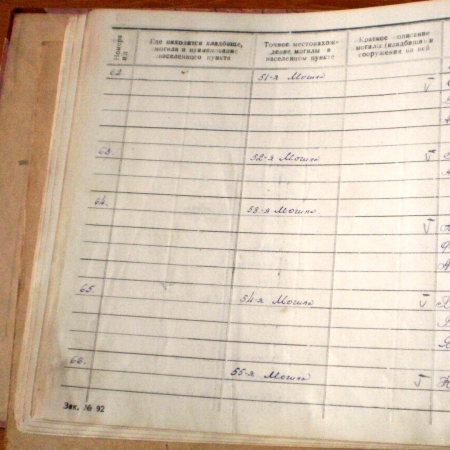 Номера
п/п
Где находится кладбище,
могила и наименование
населенного пункта
Точное местонахож-
дение могилы в
населенном пункте
Краткое описание
могилы (кладбища) и
сооружения на ней
62. 51-я Могила V
63. 52-я Могила V
64. 53-я Могила V
65. 54-я Могила V
66. 55-я Могила V
Зак. № 92